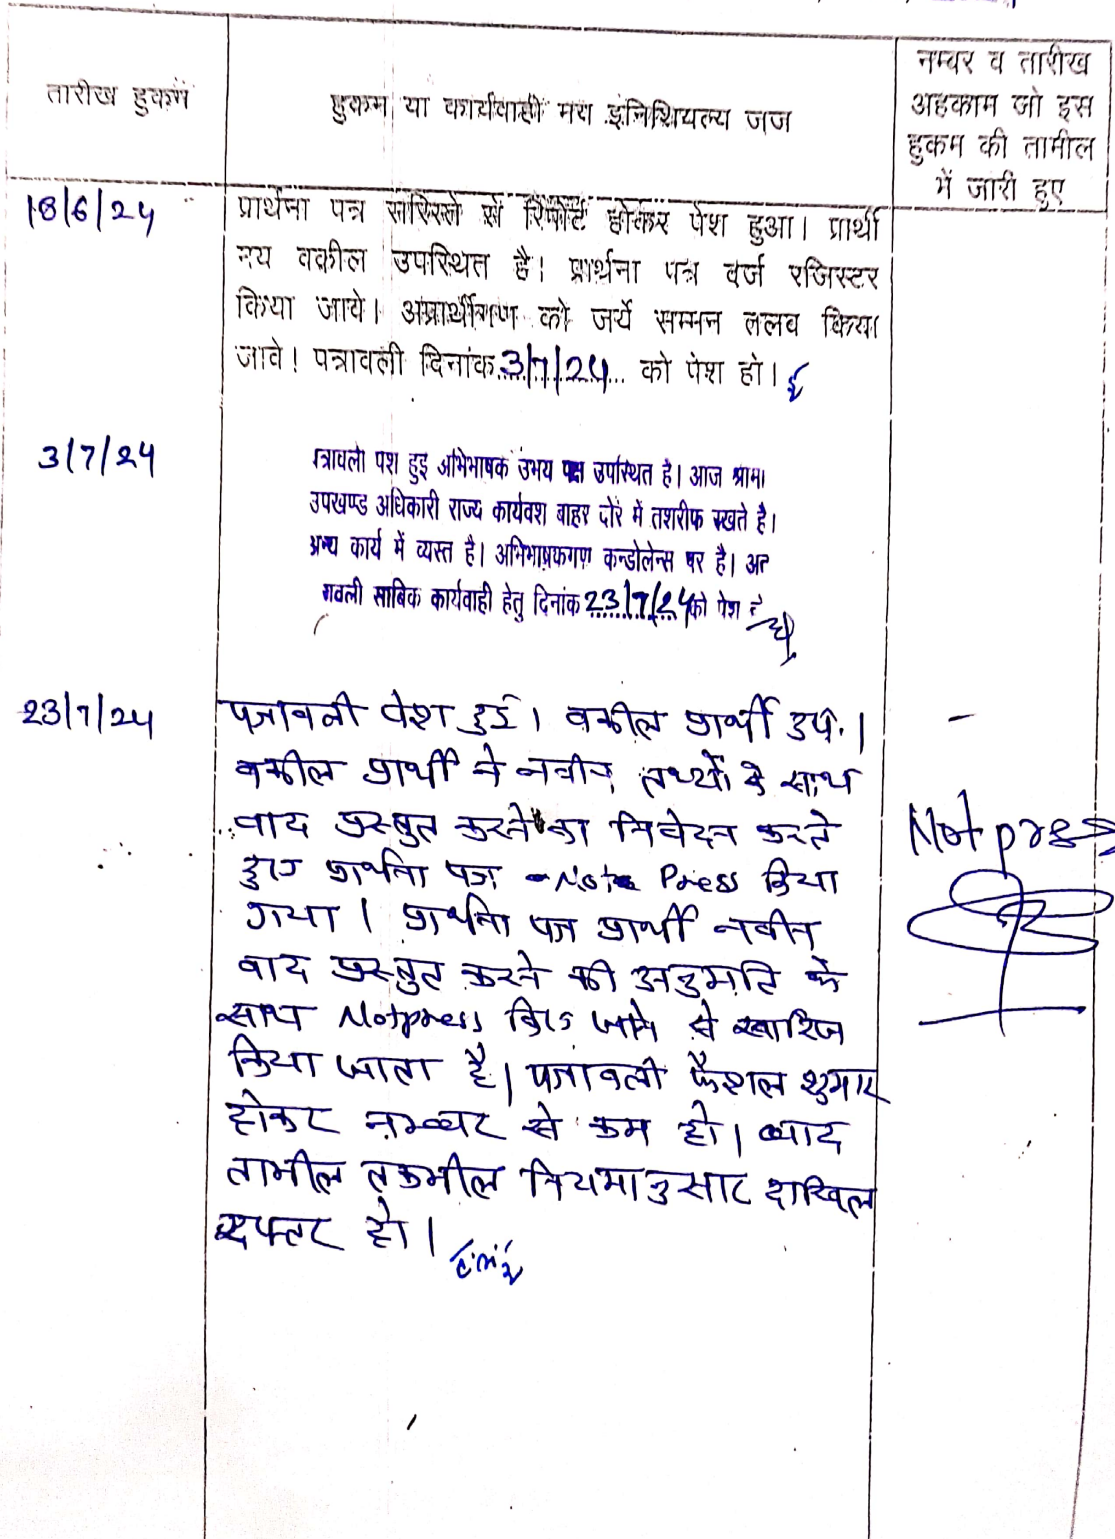 तारीख हुकम
हुकम या कार्यवाही मय इंनिशियल्य जज
नम्बर व तारीख
अहकाम जो इस
हुकम की तामील
में जारी हुए
18/6/24
प्रार्थना पत्र सरिस्ते से रिपोर्ट होकर पेश हुआ। प्रार्थी
मय वकील उपस्थित है। प्रार्थना पत्र दर्ज रजिस्टर
किया जावे। अप्रार्थीगण को जर्ये सम्मन तलब किया
जावे। पत्रावली दिनांक 3/7/24 को पेश हो।
3/7/24
त्रावली पेश हुई अभिभाषक उभय पक्ष उपस्थित है। आज श्रीमा
उपखण्ड अधिकारी राज्य कार्यवश बाहर दोरे में तशरीफ रखते है।
अन्य कार्य में व्यस्त है। अभिभाषकगण कन्डोलेन्स पर है। अत
गवली साबिक कार्यवाही हेतु दिनांक 23/7/24 को पेश
23/7/24
पत्रावली पेश हुई। वकील प्रार्थी उप.।
वकील प्रार्थी ने नवीन तथ्यों के साथ
वाद प्रस्तुत करने का निवेदन करते
हुए प्रार्थना पत्र Not Press किया
गया। प्रार्थना पत्र प्रार्थी नवीन
वाद प्रस्तुत करने की अनुमति के
साथ Notpress किए जाने से खारिज
किया जाता है। पत्रावली फैशल शुमार
होकर नम्बर से कम हो। बाद
तामील तकमील नियमानुसार दाखिल
दफ्तर हो।
Not press